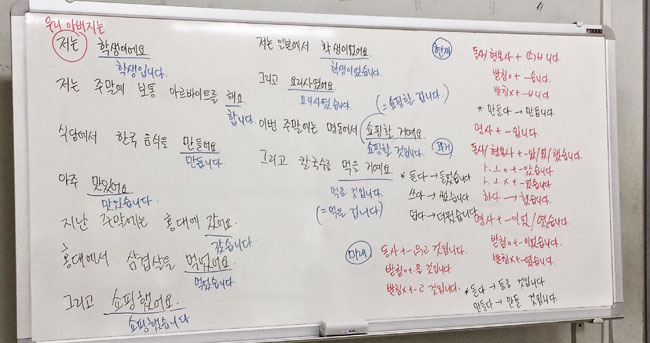 우리 아버지는
저는 학생이에요.
학생입니다.
저는 주말에 보통 아르바이트를 해요
합니다.
식당에서 한국 음식을 만들어요
만듭니다.
아주 맛있어요
맛있습니다.
지난 주말에는 홍대에 갔어요.
갔습니다
홍대에서 삼겹살을 먹었어요.
먹었습니다
그리고 쇼핑했어요.
쇼핑했습니다
저는 일본에서 학생이었어요.
학생이었습니다.
그리고 요리사였어요
요리사였습니다.
(=쇼핑할 겁니다.)
이번 주말에는 명동에서 쇼핑할 거예요.
쇼핑할 것입니다.
그리고 칼국수를 먹을 거예요
먹을 것입니다.
(=먹을 겁니다)
* 듣다 → 들었습니다
쓰다 → 썼습니다
덥다 → 더웠습니다
현재
동사/형용사 +
받침o+ -습니다.
받침x+ -ㅂ니다
* 만들다 → 만듭니다
명사 + -입니다.
과거
동사/형용사 + -았/었/했습니다
ㅏ,ㅗ o + -았습니다
ㅏ,ㅗ x + -었습니다.
하다 → 했습니다.
명사 + -이었/였습니다.
받침o+ -이었습니다.
받침x+ -였습니다.
미래
동사 + -(으)ㄹ 것입니다.
받침o+ -을 것입니다
받침x+ -ㄹ 것입니다.
* 듣다 → 들을 것입니다
만들다 → 만들 것입니다.